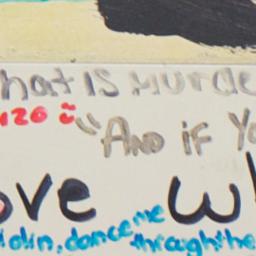 hat IS MURDE
420 "AND iF Yo
ove w
iolin, dance me throughthe